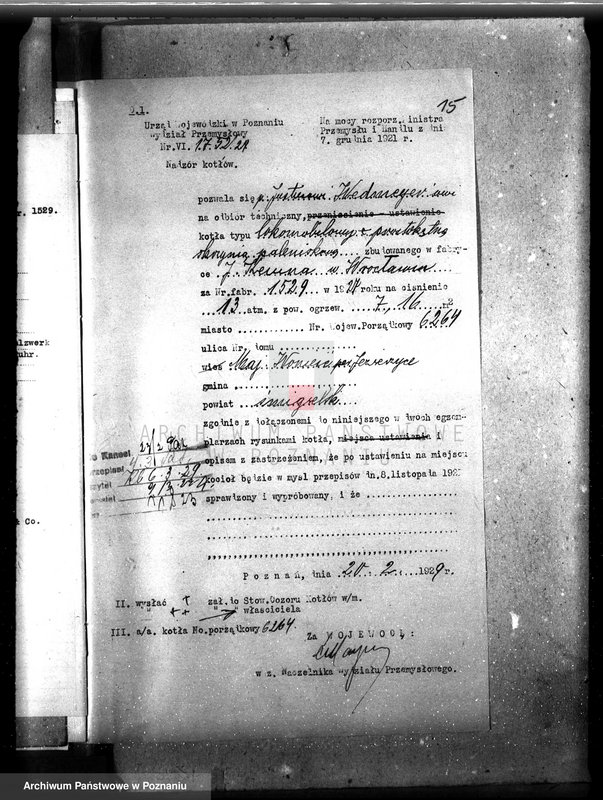 15
D.1.
Urząd Wojewódzki w Poznaniu
Wydział Przemysłowy
Nr.VI. 17.52/29
Nadzór kotłów.
Na mocy rozporz. Ministra
Przemysłu i Handlu z dnia
7. grudnia 1921 r.
pozwala się p.
na odbiór techniczny, przeniesienie - ustawienie
kotła typu lokomobilowy z prostokątną
skrzynią paleniskową .... zbudowanego w fabry-
ce J. Kemna w Wrocławiu
za Nr.fabr. 1529 w 1924 roku na ciśnienie
13 atm. z pow. ogrzew. 7,16 m2
miasto ............ Nr. Wojew.Porządkowy 6264
ulica Nr. domu ..............
wieś Maj.
gmina ......................
powiat śmigielski
zgodnie z dołączonemi do niniejszego w dwoch egzem-
plarzach rysunkami kotła, miejsca ustawienia i
opisem z zastrzeżeniem, że po ustawieniu na miejscu
kocioł będzie w myśl przepisów dn.8.listopada 192
sprawdzony i wypróbowany, i że ................
Poznań, dnia 20. 2. 1929 r.
II. wysłać + zał. do Stow.Dozoru Kotłów w/m.
++ " " właściciela
III. a/a. kotła No.porządkowy 6264.
Za WOJEWODĘ:
w z. Naczelnika Wydziału Przemysłowego.
r. 1529.
alzwerk
uhr.
& Co.
do Kancel.
ARCHIWUM PAŃSTWOWE
W POZNANIU
Archiwum Państwowe w Poznaniu